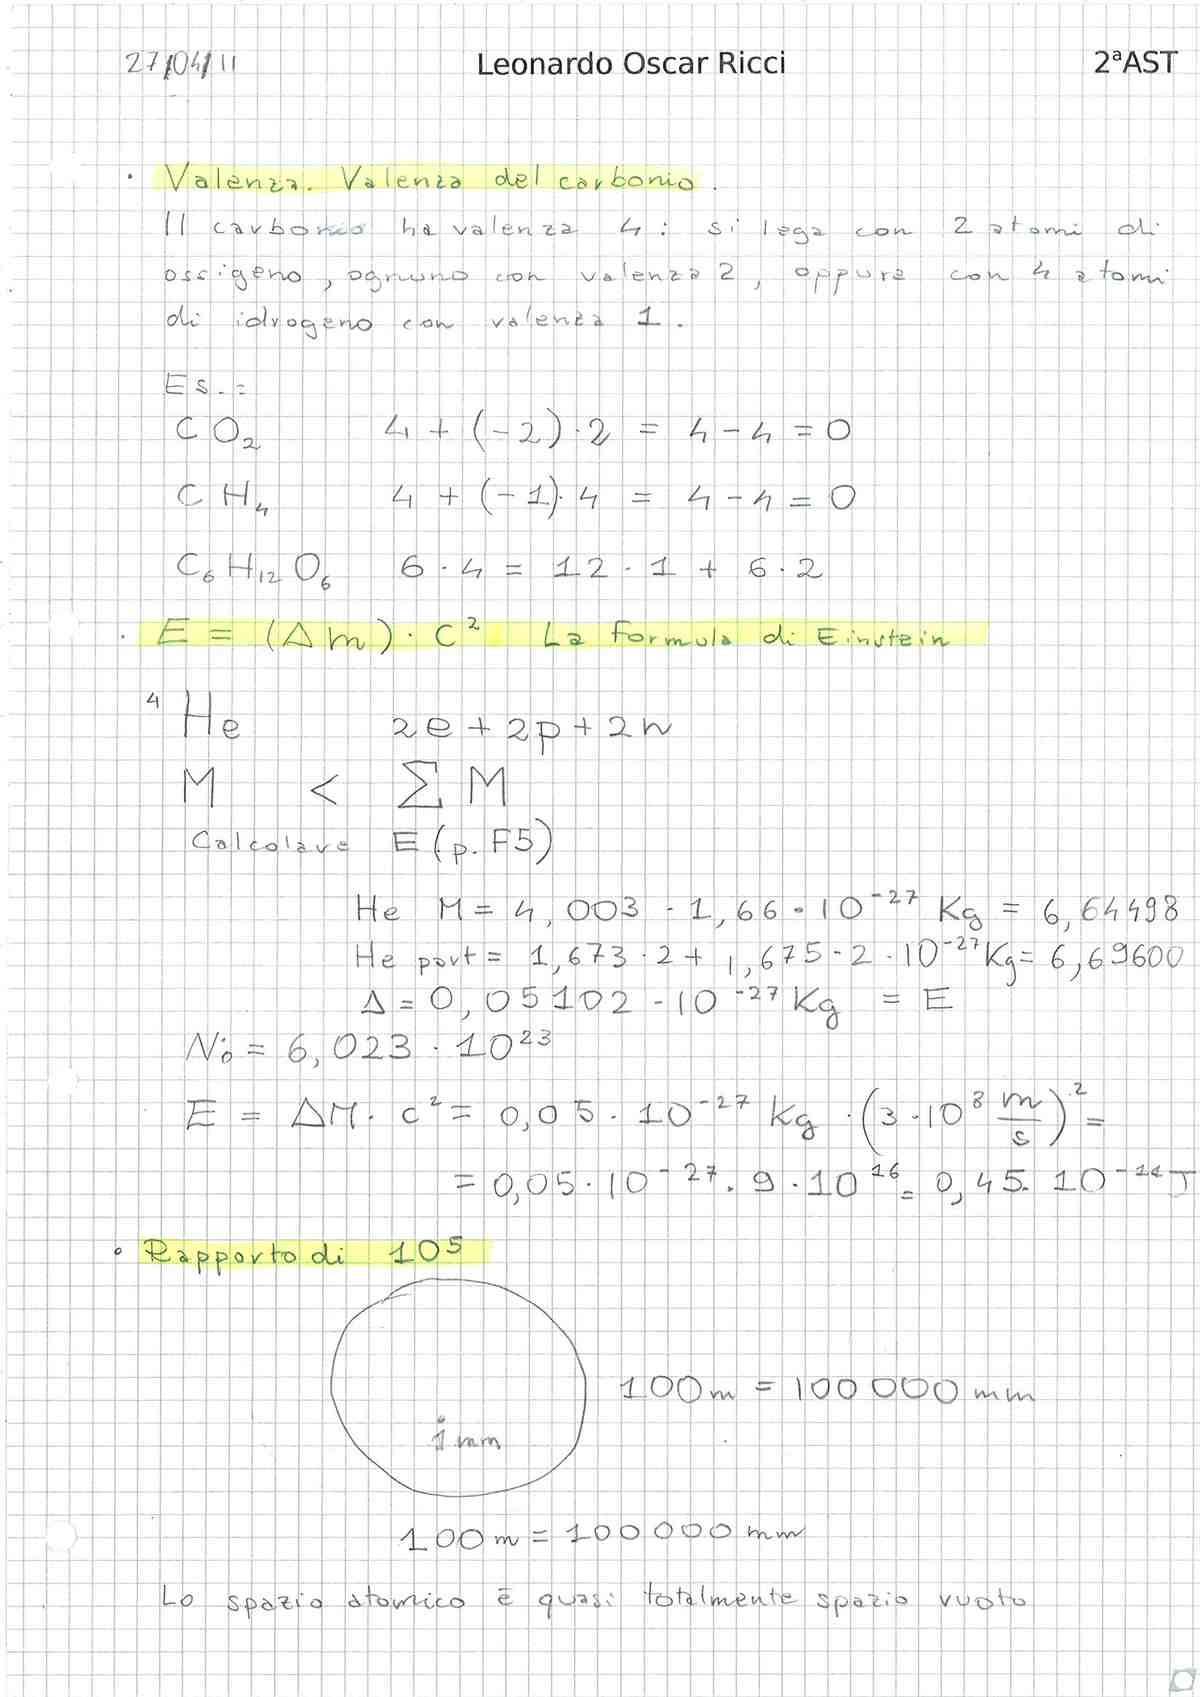 27/04/11 Leonardo Oscar Ricci 2ªAST
• Valenza. Valenza del carbonio.
Il carbonio ha valenza 4: si lega con 2 atomi di
ossigeno, ognuno con valenza 2, oppure con 4 atomi
di idrogeno con valenza 1.
Es.:
CO₂ 4 + (-2)·2 = 4-4=0
CH₄ 4 + (-1)·4 = 4-4=0
C₆H₁₂O₆ 6·4 = 12·1 + 6·2
• E = (Δm)·c² La formula di Einstein
⁴He 2e+2p+2n
M < ΣM
Calcolare E (p. F5)
He M = 4,003 · 1,66 · 10⁻²⁷ Kg = 6,64498
He part = 1,673·2 + 1,675·2·10⁻²⁷ Kg = 6,69600
Δ = 0,05102 · 10⁻²⁷ Kg = E
N₀ = 6,023 · 10²³
E = ΔM · c² = 0,05 · 10⁻²⁷ Kg · (3·10⁸ m/s)² =
= 0,05·10⁻²⁷ · 9 · 10¹⁶ = 0,45 · 10⁻¹¹ J
• Rapporto di 10⁵
100m = 100 000 mm
1 mm
100m = 100 000 mm
Lo spazio atomico è quasi totalmente spazio vuoto